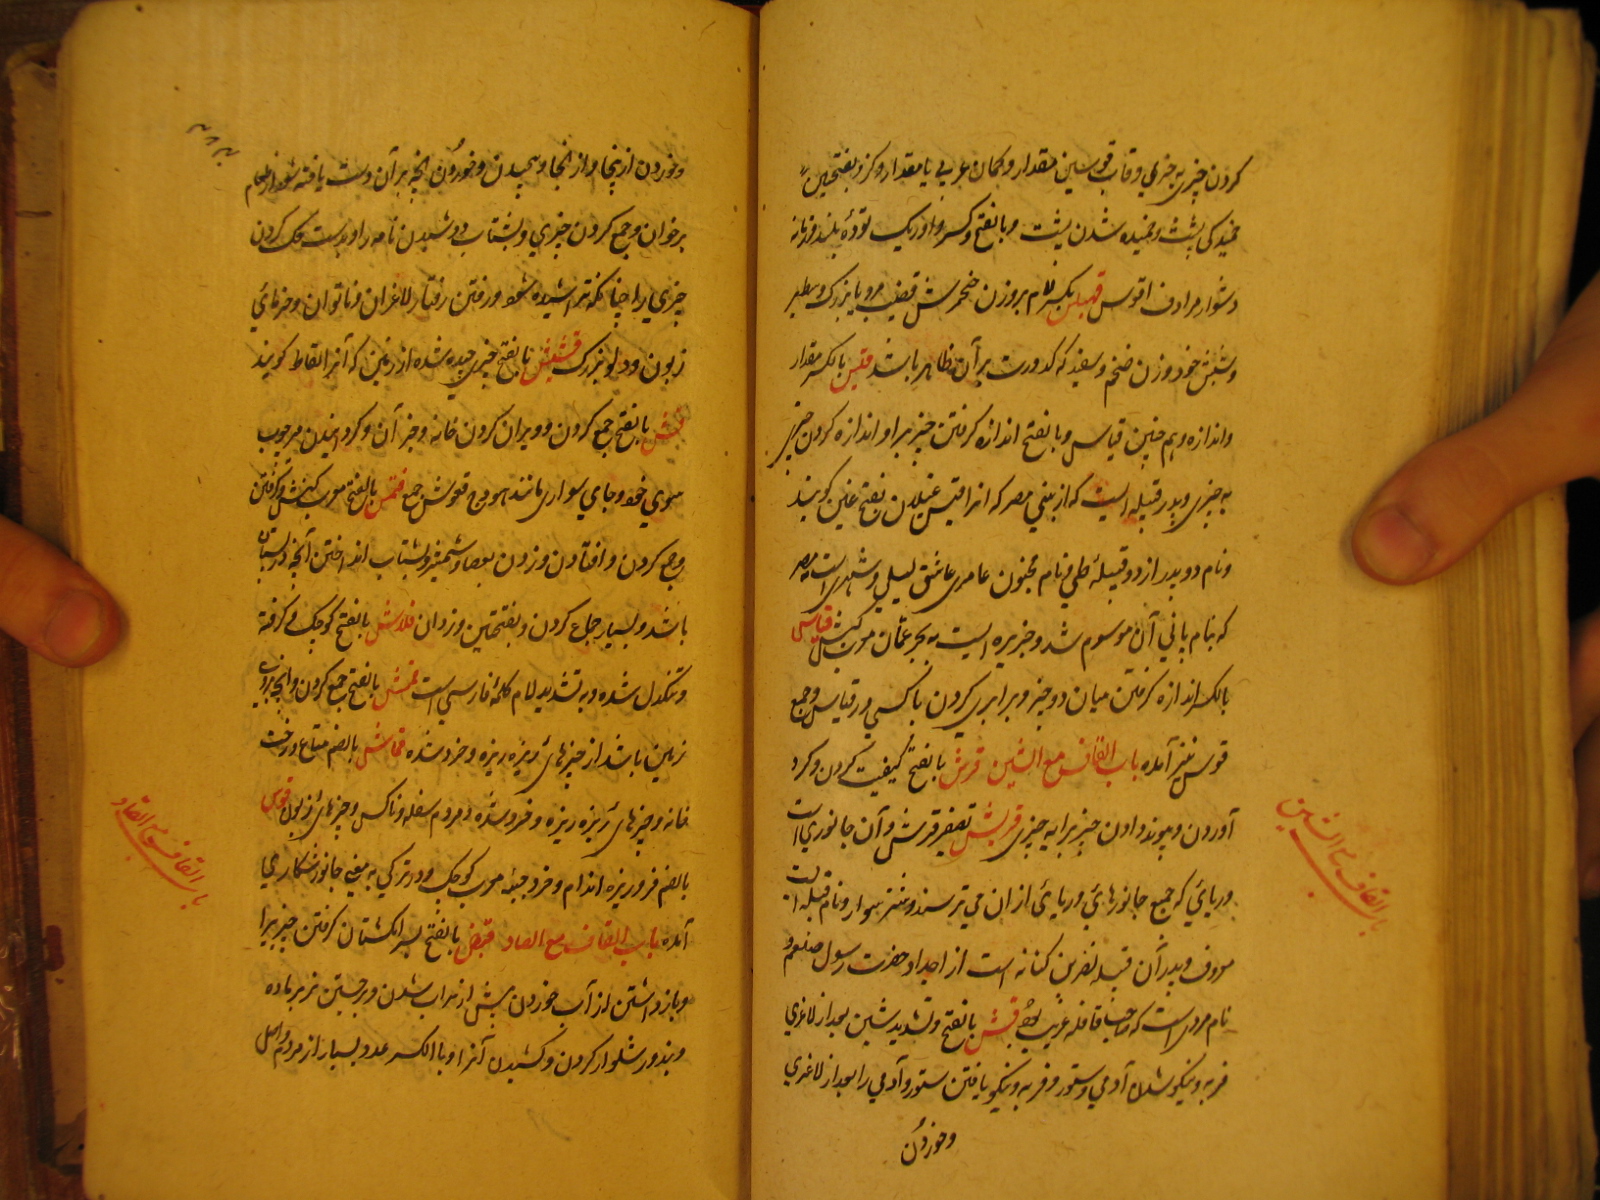 کردن چیزی به چیزی و قاب قوسین مقدار دو کمان عربی یا مقدار دو کز و بفتحتین
خمیدکی پشت و خمیده شدن پشت و بالفتح و کسر واو ریک توده بلند و زمانه
دشوار مرادف اقوس قهبلس بکسر لام بروزن قضیب مرد یا بزرک و سطبر
و شپش خرد و زن ضخم و سفید که کدورت بر آن ظاهر باشد قیس بالکسر مقدار
و اندازه و هم چنین قیاس و بالفتح اندازه کرفتن چیزیرا و اندازه کردن چیزی
به چیزی و پدر قبیله است از بنی مضر که انرا قیس غیلان بفتح غین کویند
و نام دو پدر از دو قبیله طی و نام مجنون عامری عاشق لیلی و شهری است بمصر
که بنام بانی آن موسوم شد و جزیره است به بحر عمان معرب کیش قیاس
بالکسر اندازه کرفتن میان دو چیز و برابری کردن با کسی در قیاس و جمع
قوس نیز آمده باب القاف مع الشین قرش بالفتح کردن و کرد
آوردن و پیوند دادن چیزیرا به چیزی قریش تصغیر قرش و آن جانوری است
دریائی که جمیع جانورهای دریائی از ان می ترسند و شتر سوار و نام قبیله است
معروف و پدر آن قبیله نضر بن کنانه است از اجداد حضرت رسول صلعم و
نام مردی است که صاحب قافله غریب بود قش بالفتح و تشدید شین بعد از لاغری
فربه و نیکو شدن آدمی و ستور و فربه و نیکو یافتن ستور و آدمی را بعد از لاغری
و خوردن
و خوردن از اینجا و از انجا و پیچیدن و خوردن انچه بر آن دست یافته شود از طعام
بر خوان و جمع کردن چیزی و بشتاب دوشیدن ناقه را و بدست حک کردن
چیزی را چنانکه تراشیده شود و رفتن رفتار لاغران و ناتوان و خرمای
زبون و دلو بزرک قشیش بالفتح چیزی چیده شده از زمین که آنرا لقاط کویند
قعش بالفتح جمع کردن و ویران کردن خانه و جز آن و کردانیدن سر چوب
سوی خود و جای سواری مانند هودج قعوش جمع قفش بالفتح معرب کفش و کرفتن
و جمع کردن و افتادن و زدن بعصا و شمشیر و بشتاب انداختن آنچه در پستان
باشد و بسیار جماع کردن و بفتحتین دزدان قلاش بالفتح کوچک و کرفته
و تنکدل شده و به تشدید لام کلمه فارسی است قمش بالفتح جمع کردن و انچه بر روی
زمین باشد از چیزهای ریزه ریزه و خرد شده قماش بالضم متاع و رخت
خانه و چیزهای ریزه ریزه و خرد شده و مردم سفله و ناکس و چیزهای زبون قوش
بالضم مرد ریزه اندام و خرد جثه معرب کوچک و در ترکی به معنی جانور شکاری
آمده باب القاف مع الصاد قبص بالفتح بسر انکشتان کرفتن چیزیرا
و باز داشتن از آب خوردن پیش از سیراب شدن و برجستن نر بر ماده
و بند در شلوار کردن و کشیدن آنرا و بالکسر عدد بسیار از مردم و اصل
باب القاف مع الشین
باب القاف مع الصاد